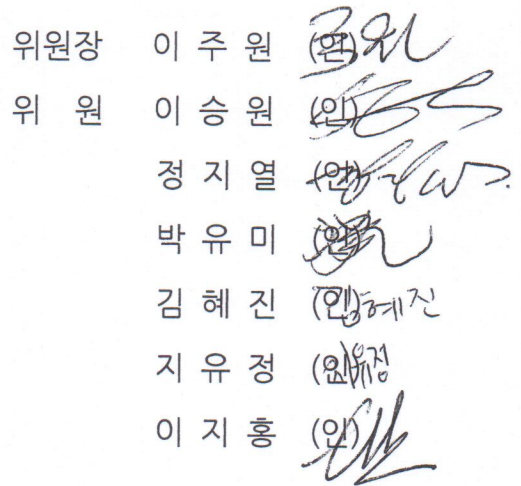 위원장 이 주 원 (인)
위 원 이 승 원 (인)
정 지 열 (인)
박 유 미 (인)
김 혜 진 (인) 김혜진
지 유 정 (인) 지유정
이 지 홍 (인)